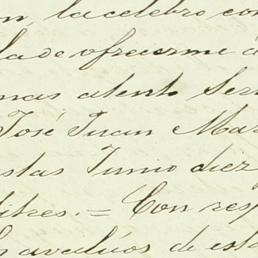 n, la celebro con
la de ofrecerme á
mas atento Ser
José Juan Mar
stas Junio diez
itres. = Con resp
s avalúos de esta